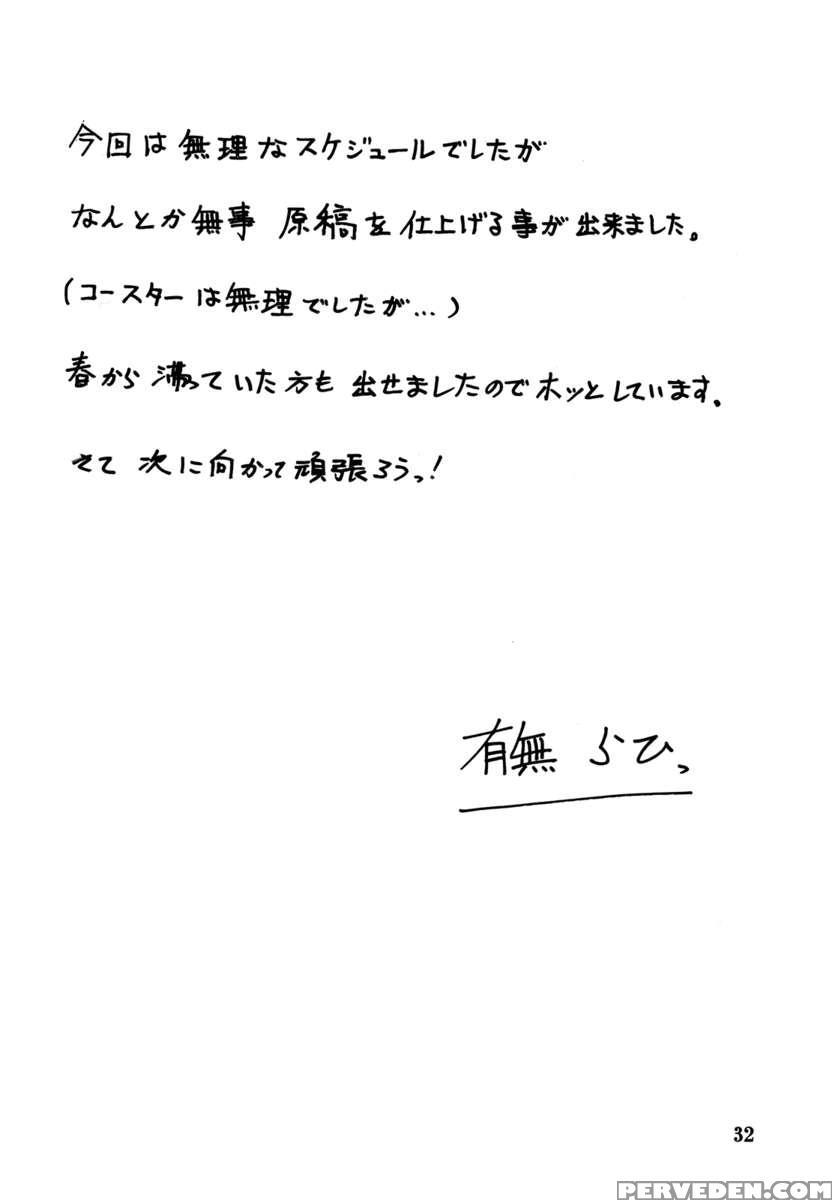 今回は無理なスケジュールでしたが
なんとか無事 原稿を仕上げる事が出来ました。
(コースターは無理でしたが…)
春から滞っていた方も 出せましたのでホッとしています。
さて 次に向かって頑張ろうっ!
有無 らひっ
32
PERVEDEN.COM